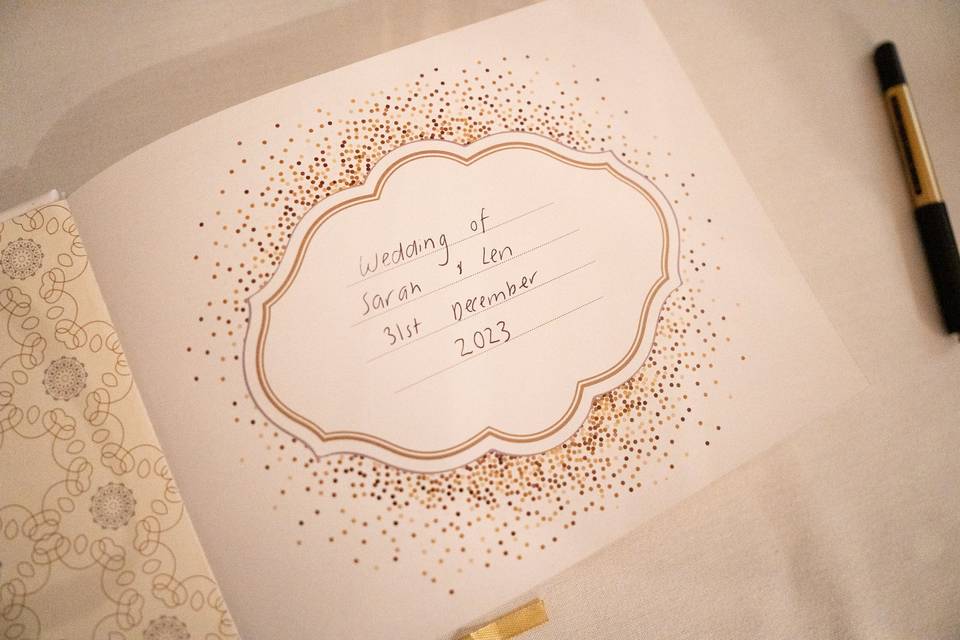 Wedding of
Sarah & Len
31st December
2023